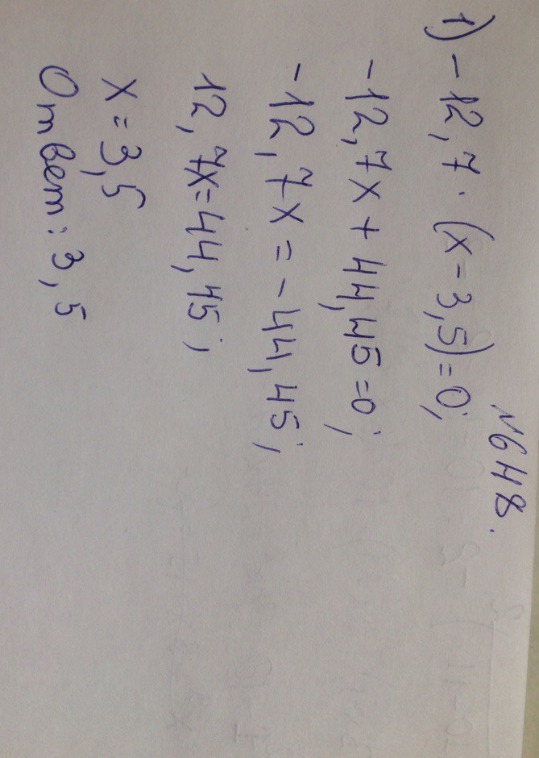 №648.
1) -12,7 · (x-3,5)=0;
-12,7x + 44,45=0;
-12,7x = -44,45;
12,7x=44,45;
x=3,5
Ответ: 3,5